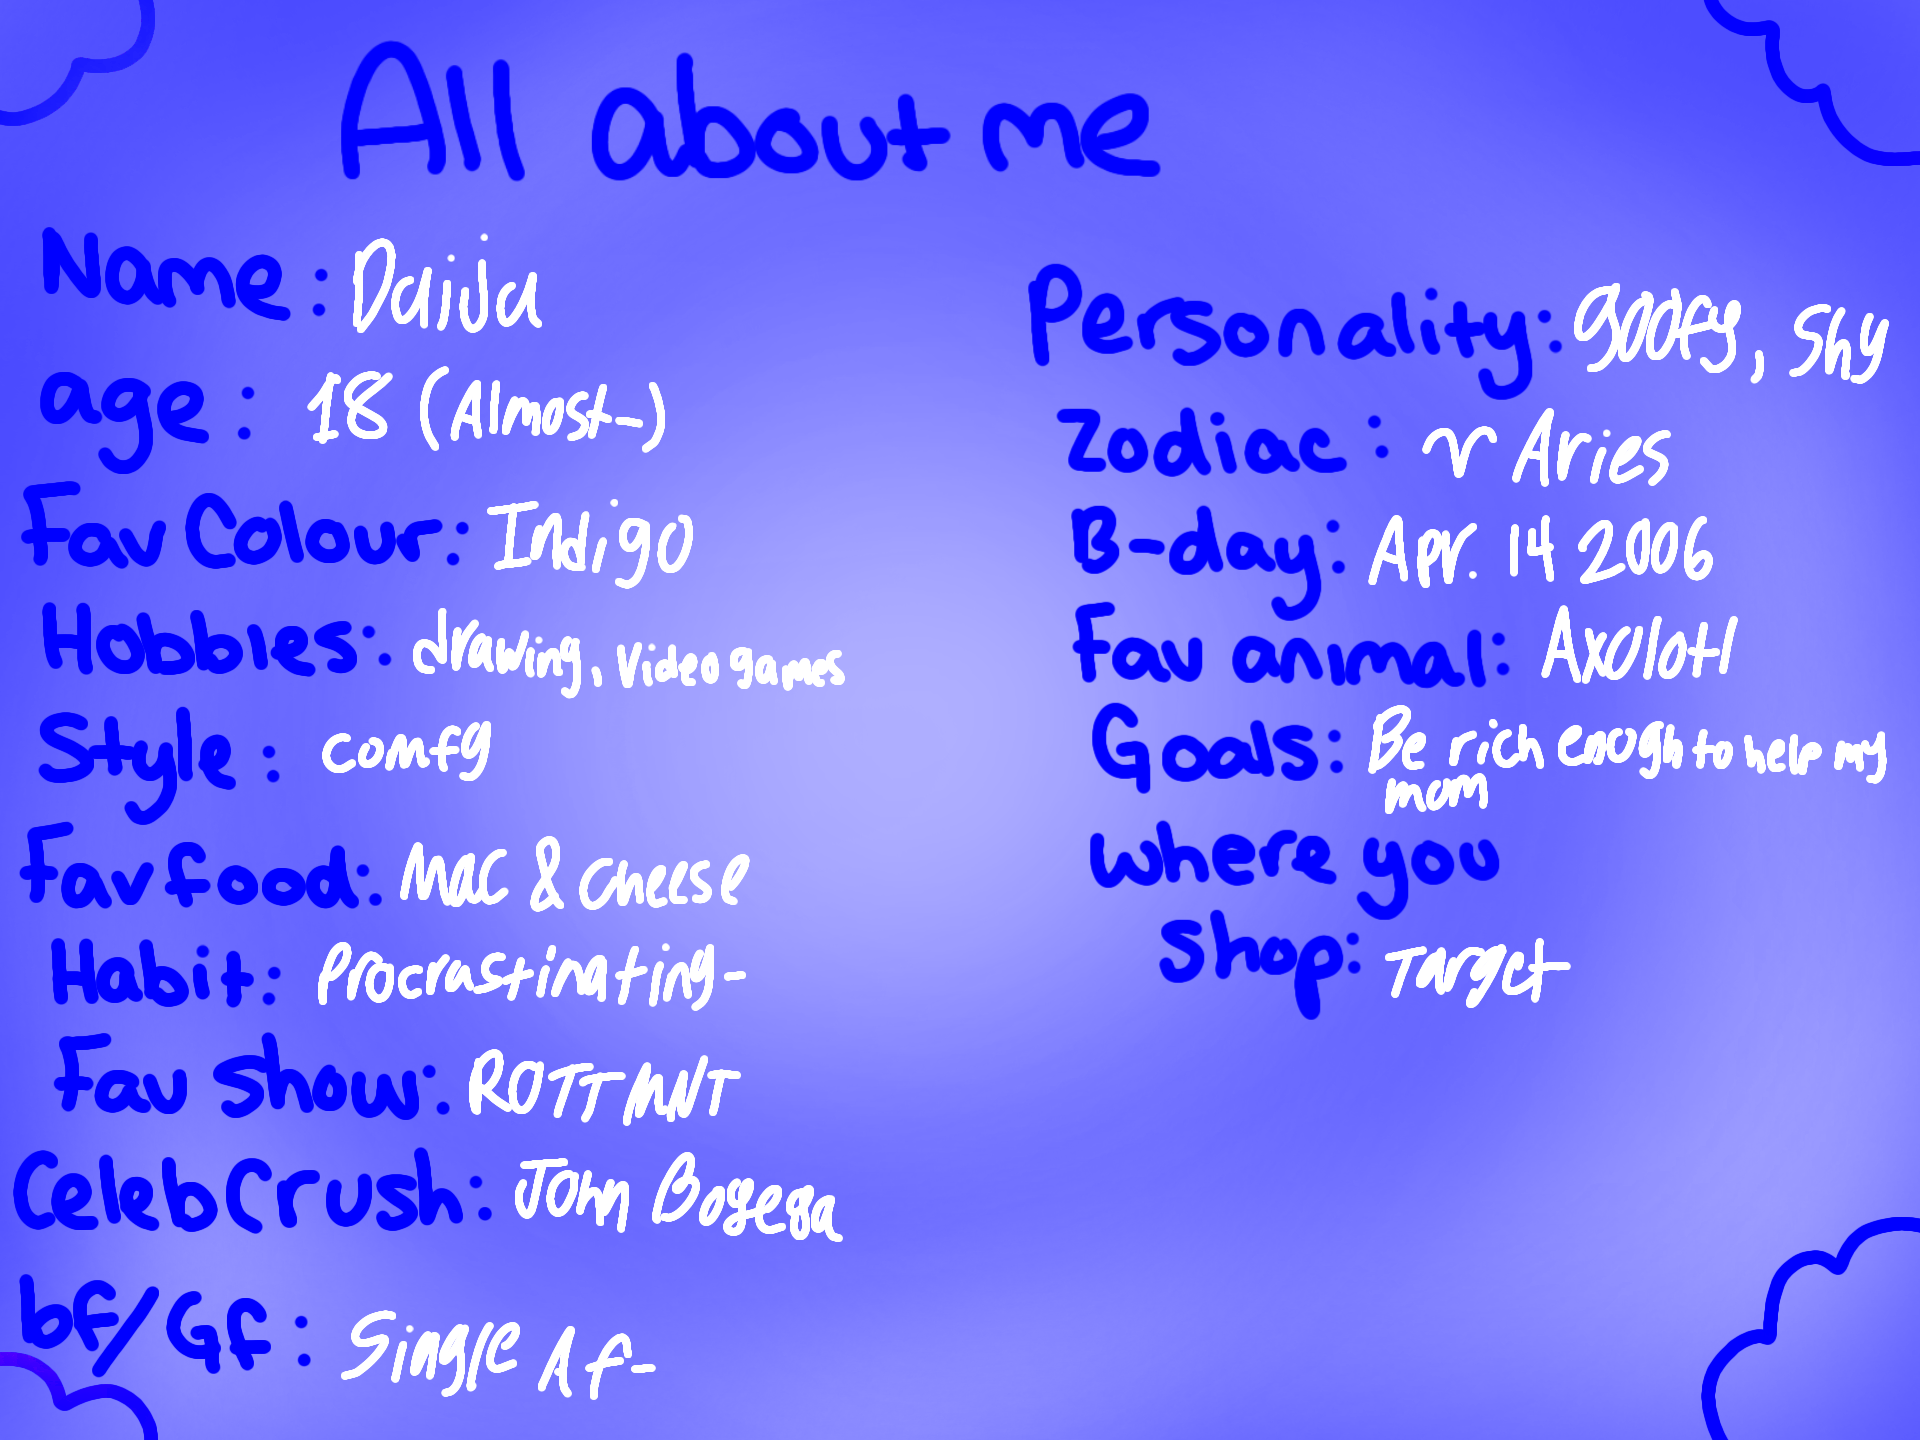 All about me
Name: Daija
age: 18 (Almost-)
Fav Colour: Indigo
Hobbies: drawing, Video games
Style: comfy
Fav food: Mac & Cheese
Habit: Procrastinating-
Fav show: ROTTMNT
Celeb Crush: John Bogega
bf/Gf: Single Af-
Personality: goofy, Shy
Zodiac: ♈ Aries
B-day: Apr. 14 2006
Fav animal: Axolotl
Goals: Be rich enough to help my
mom
where you
shop: Target